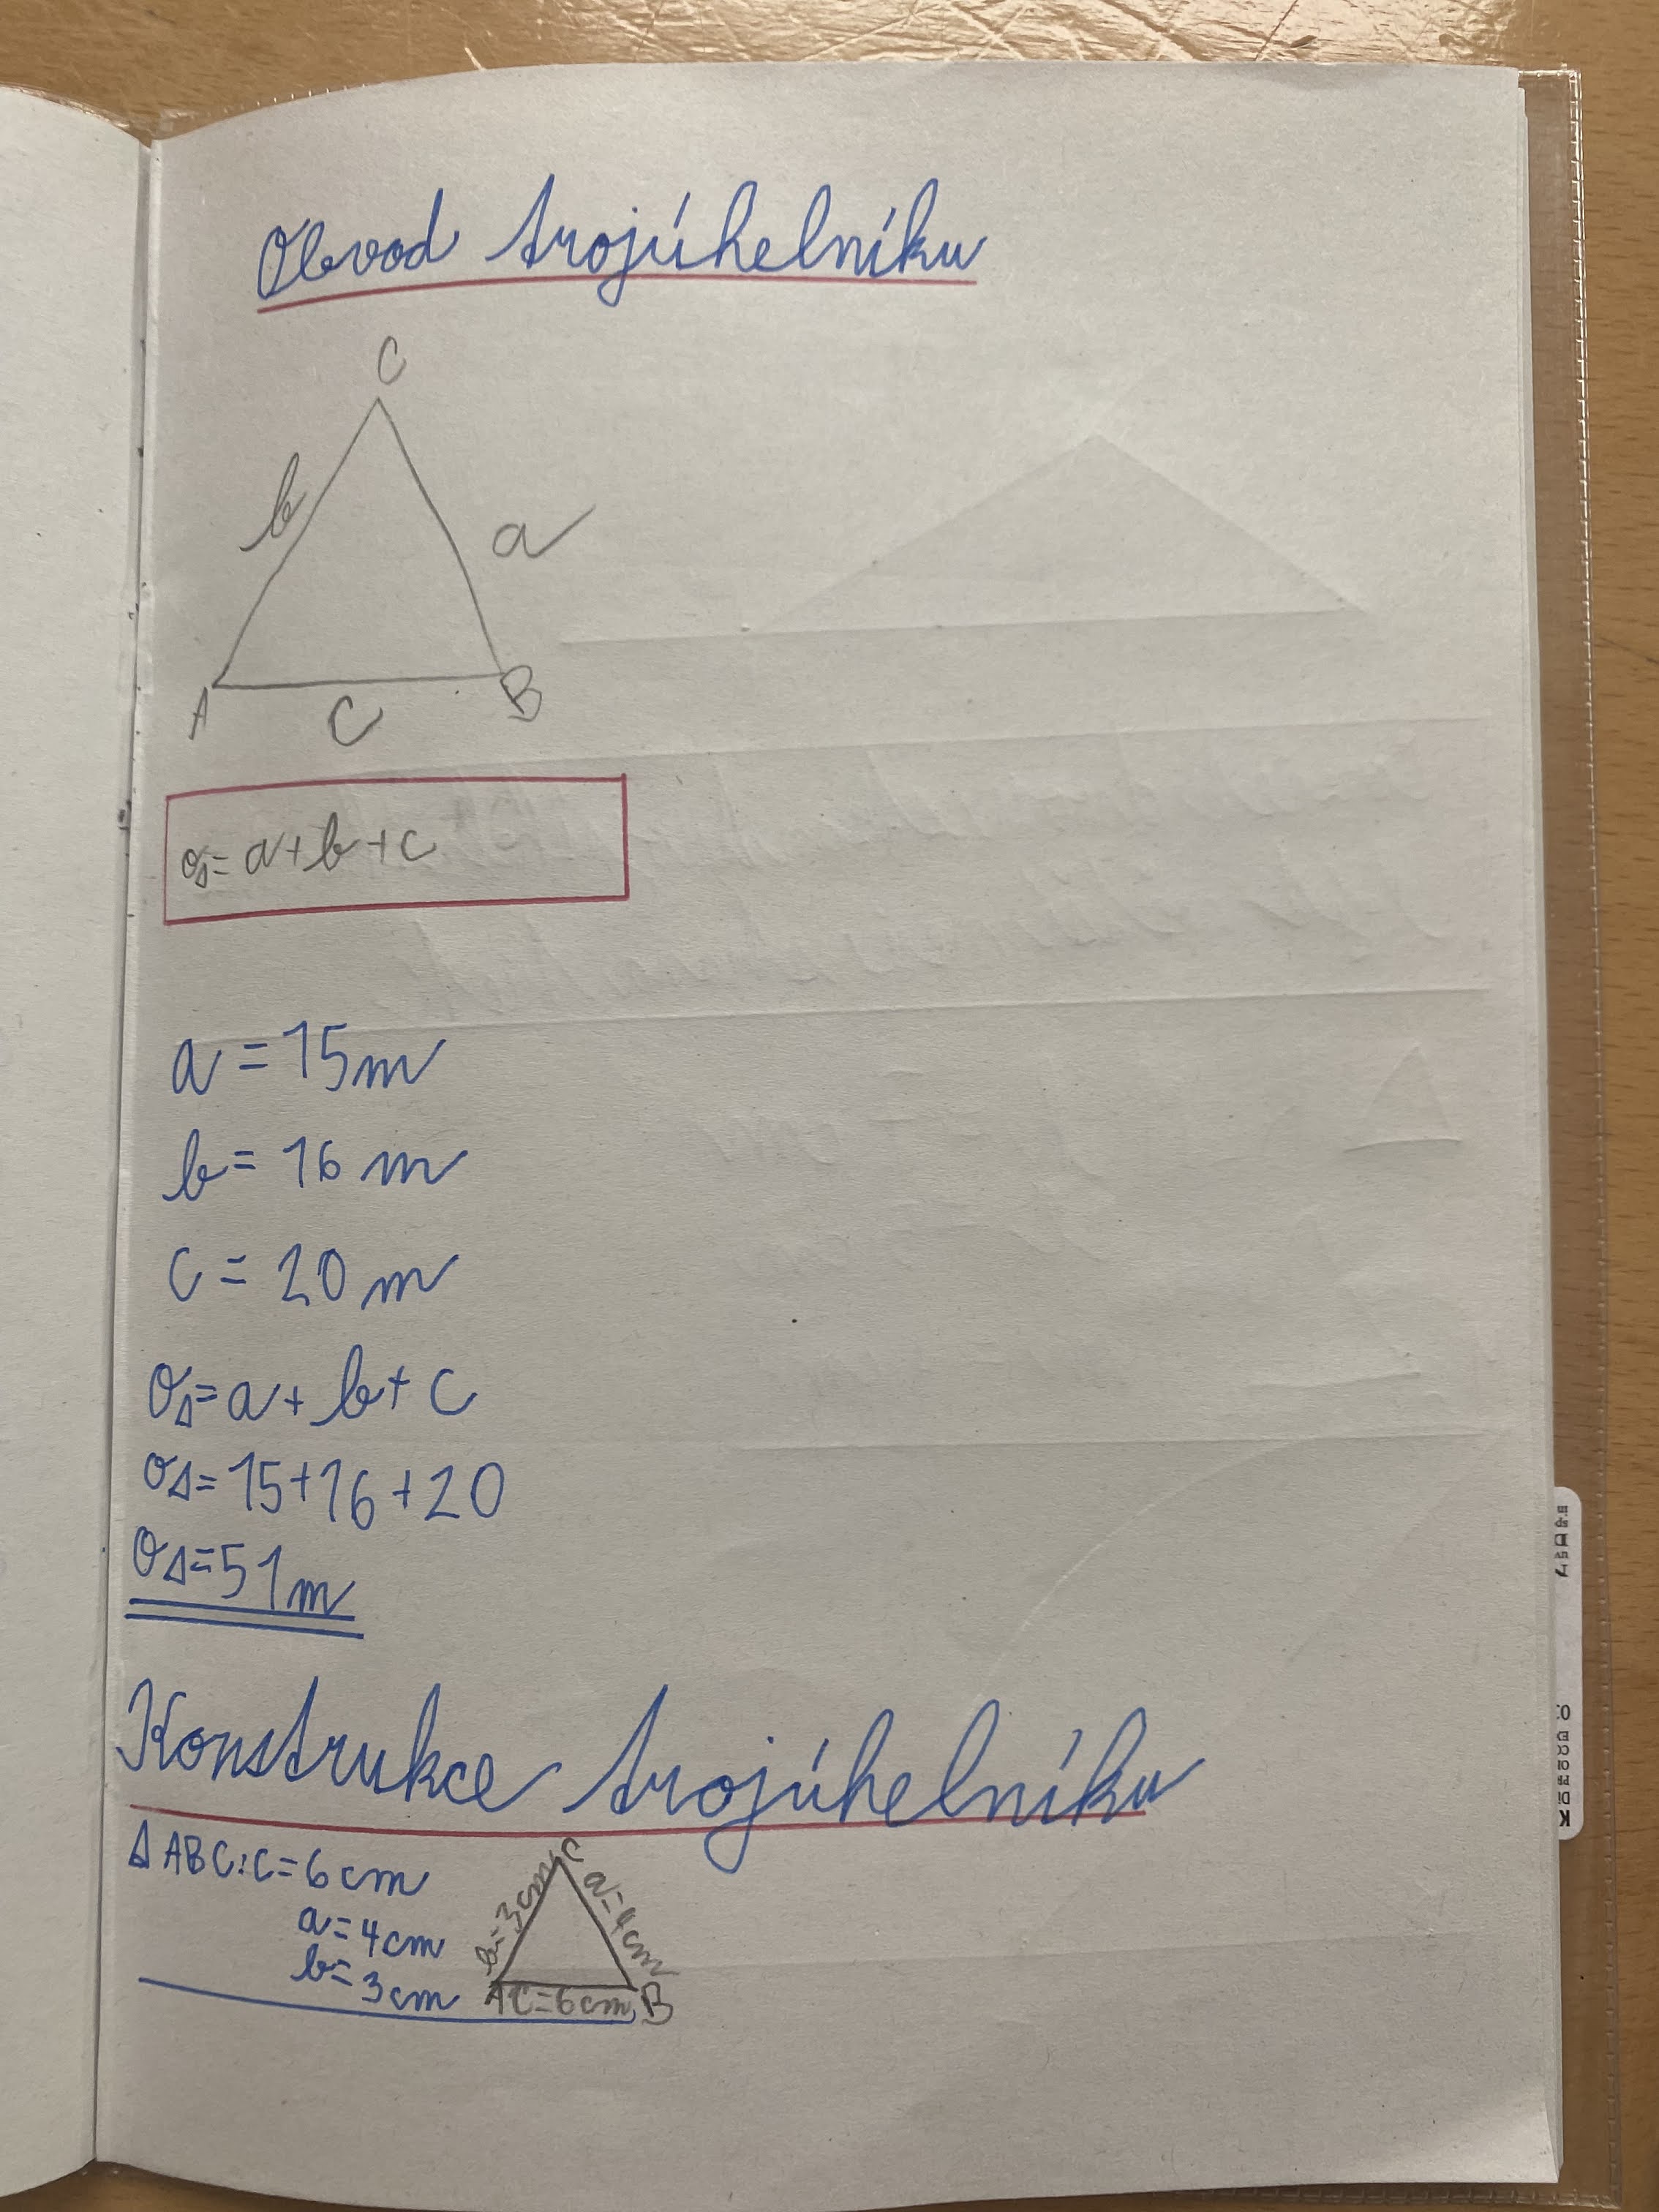 Obvod trojúhelníku
C
b
a
A
c
B
o△=a+b+c
a=15m
b=16m
c=20m
o△=a+b+c
o△=15+16+20
o△=51m
Konstrukce trojúhelníku
△ABC: c=6cm
a=4cm
b=3cm
C
b=3cm
a=4cm
A
c=6cm
B